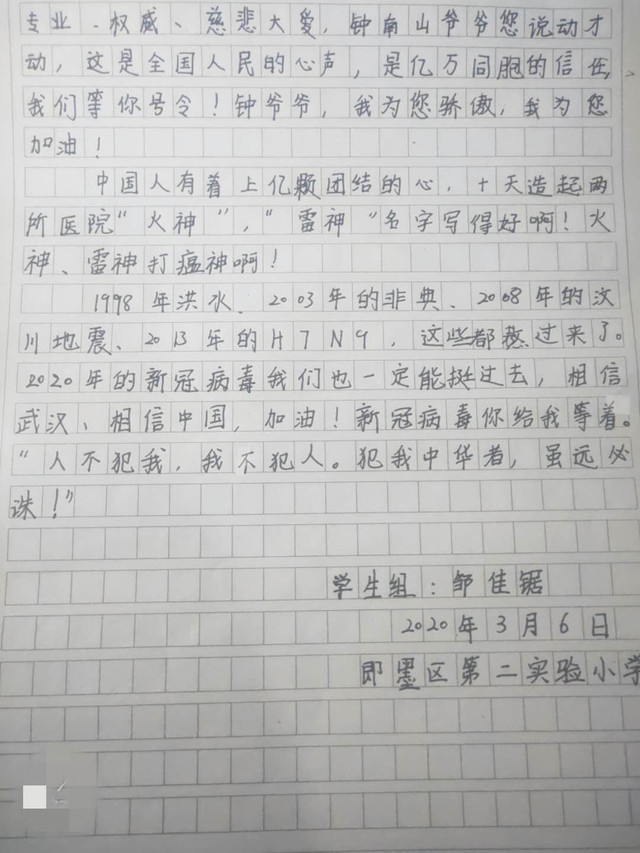 专业、权威、慈悲大爱,钟南山爷爷您说动才
动,这是全国人民的心声,是亿万同胞的信任,
我们等你号令!钟爷爷,我为您骄傲,我为您
加油!
中国人有着上亿颗团结的心,十天造起两
所医院“火神”,“雷神“名字写得好啊!火
神、雷神打瘟神啊!
1998年洪水、2003年的非典、2008年的汶
川地震、2013年的H7N9,这些都熬过来了。
2020年的新冠病毒我们也一定能挺过去,相信
武汉、相信中国,加油!新冠病毒你给我等着。
“人不犯我,我不犯人。犯我中华者,虽远必
诛!”
学生组:邹佳锯
2020年3月6日
即墨区第二实验小学